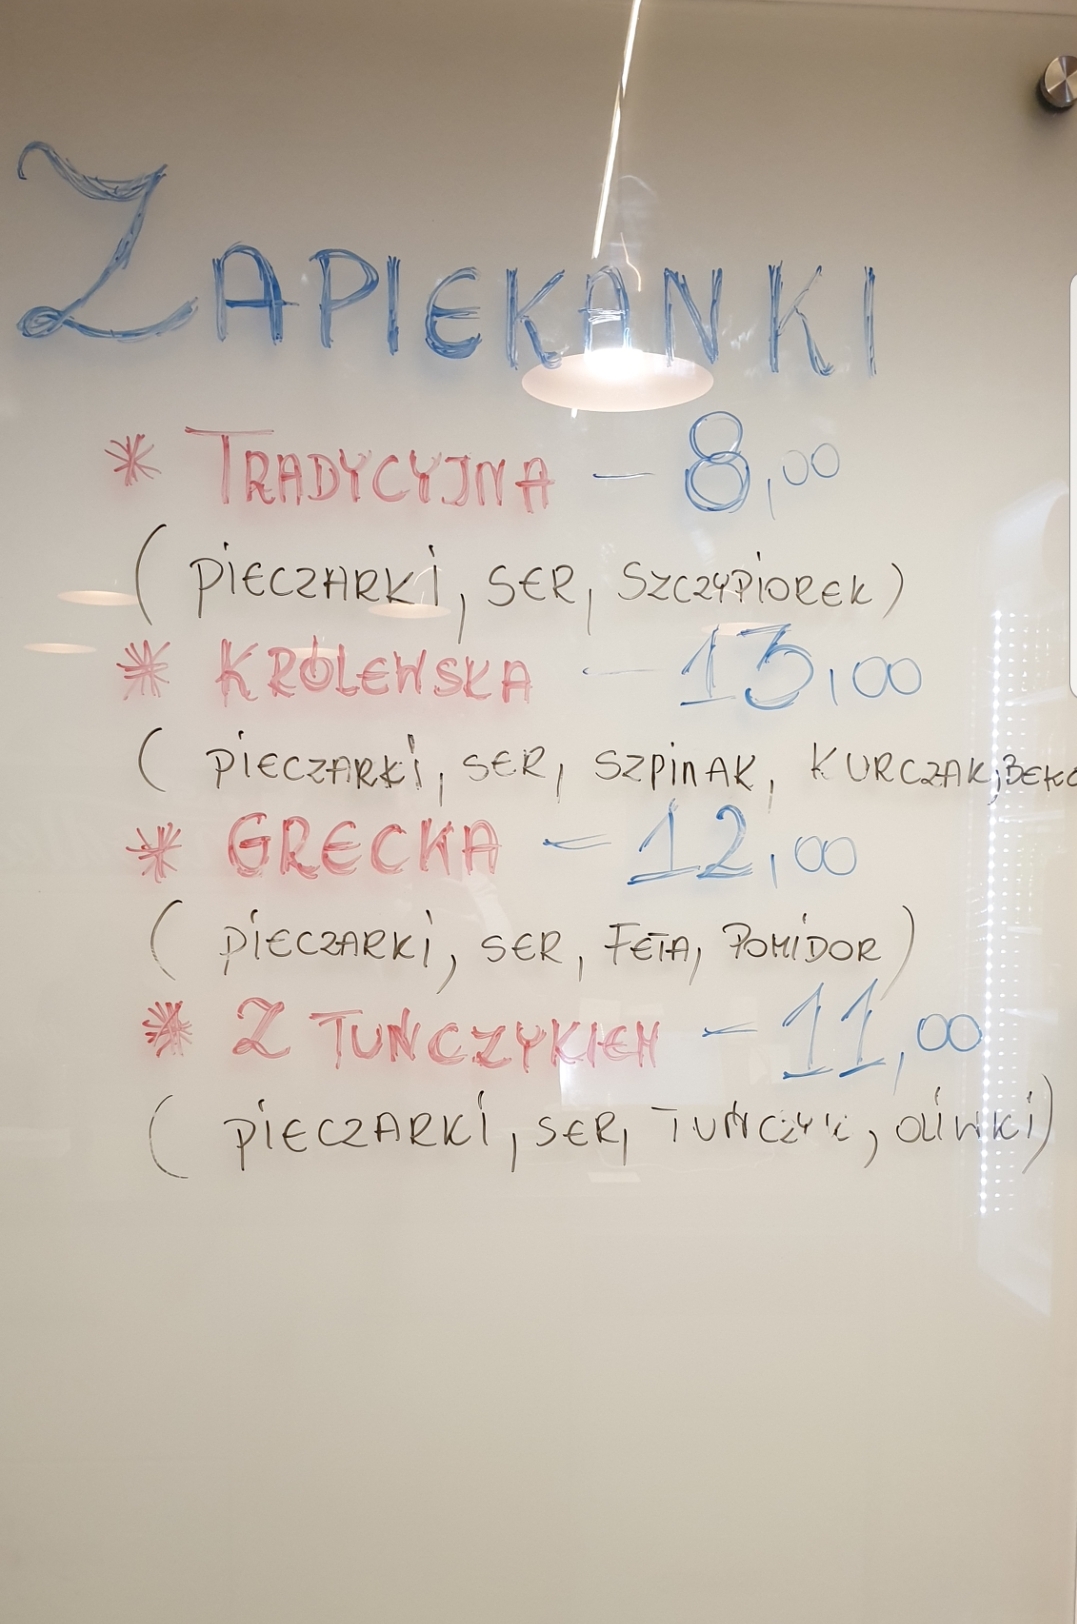 ZAPIEKANKI
* TRADYCYJNA - 8,00
( PIECZARKI, SER, SZCZYPIOREK)
* KRÓLEWSKA - 13,00
( PIECZARKI, SER, SZPINAK, KURCZAK,
* GRECKA - 12,00
( PIECZARKI, SER, FETA, POMIDOR)
* Z TUŃCZYKIEM - 11,00
( PIECZARKI, SER, TUŃCZYK, OLIWKI)